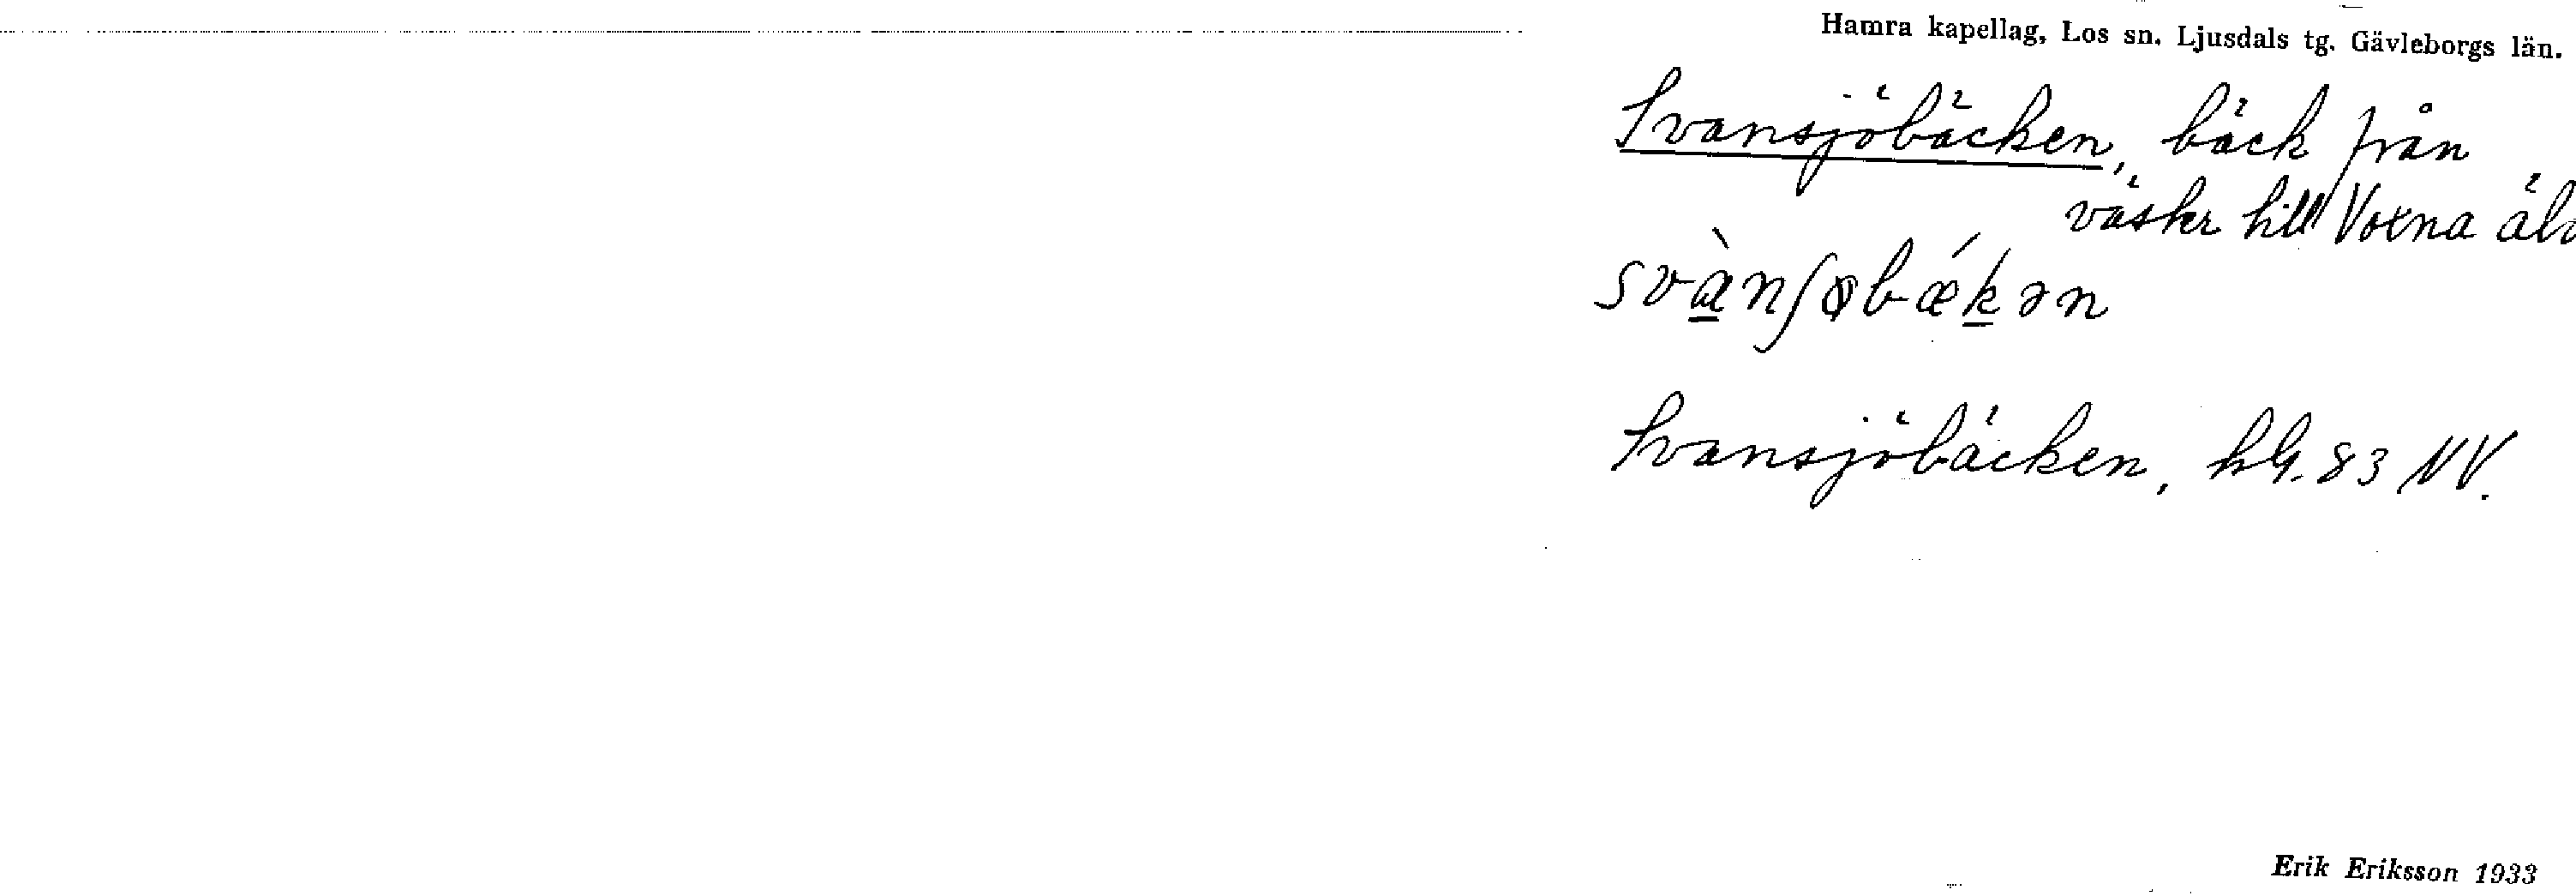 Hamra kapellag, Los sn. Ljusdals tg. Gävleborgs län.
Svansjöbäcken, bäck från
väster till Voxna älv
svànʃøbǽkən
Svansjöbäcken, bl. 83 NV.
Erik Eriksson 1933